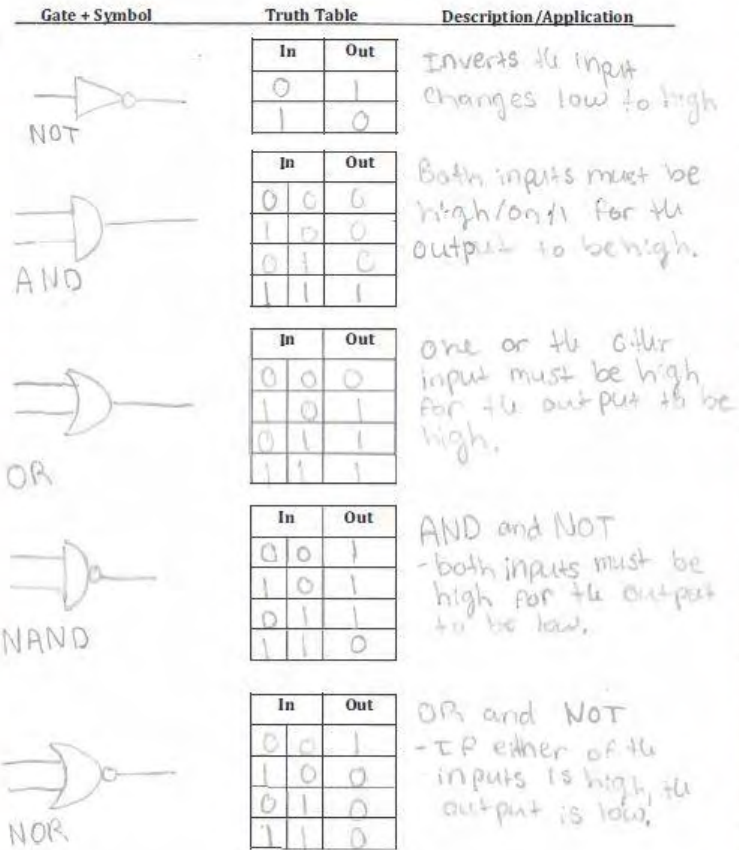 Gate + Symbol Truth Table Description/Application
In Out
0 1
1 0
NOT
Inverts the input
changes low to high
In Out
0 0 0
1 0 0
0 1 0
1 1 1
AND
Both inputs must be
high/on/1 for the
output to be high.
In Out
0 0 0
1 0 1
0 1 1
1 1 1
OR
one or the other
input must be high
for the output to be
high.
In Out
0 0 1
1 0 1
0 1 1
1 1 0
NAND
AND and NOT
- both inputs must be
high for the output
to be low.
In Out
0 0 1
1 0 0
0 1 0
1 1 0
NOR
OR and NOT
- If either of the
inputs is high, the
output is low.